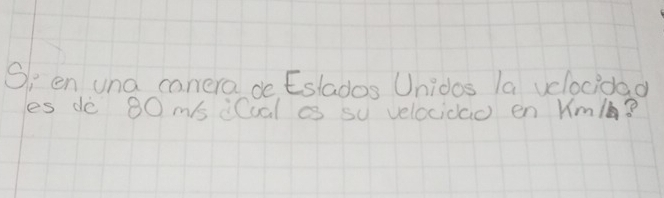 Si en una carrera de Estados Unidos la velocidad
es de 80 m/s ¿Cual es su velocidad en Km/h?